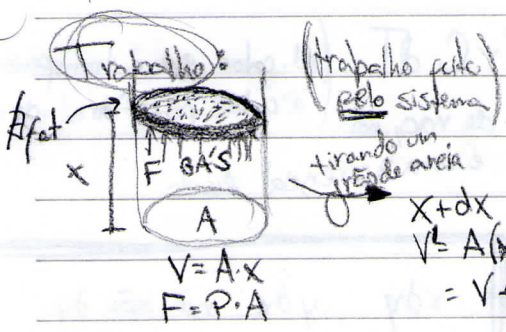 Trabalho:
(trabalho feito
pelo sistema)
∄ fat
x
F GÁS
A
tirando um
grão de areia
V = A.x
F = P.A
x + dx
V' = A(
= V